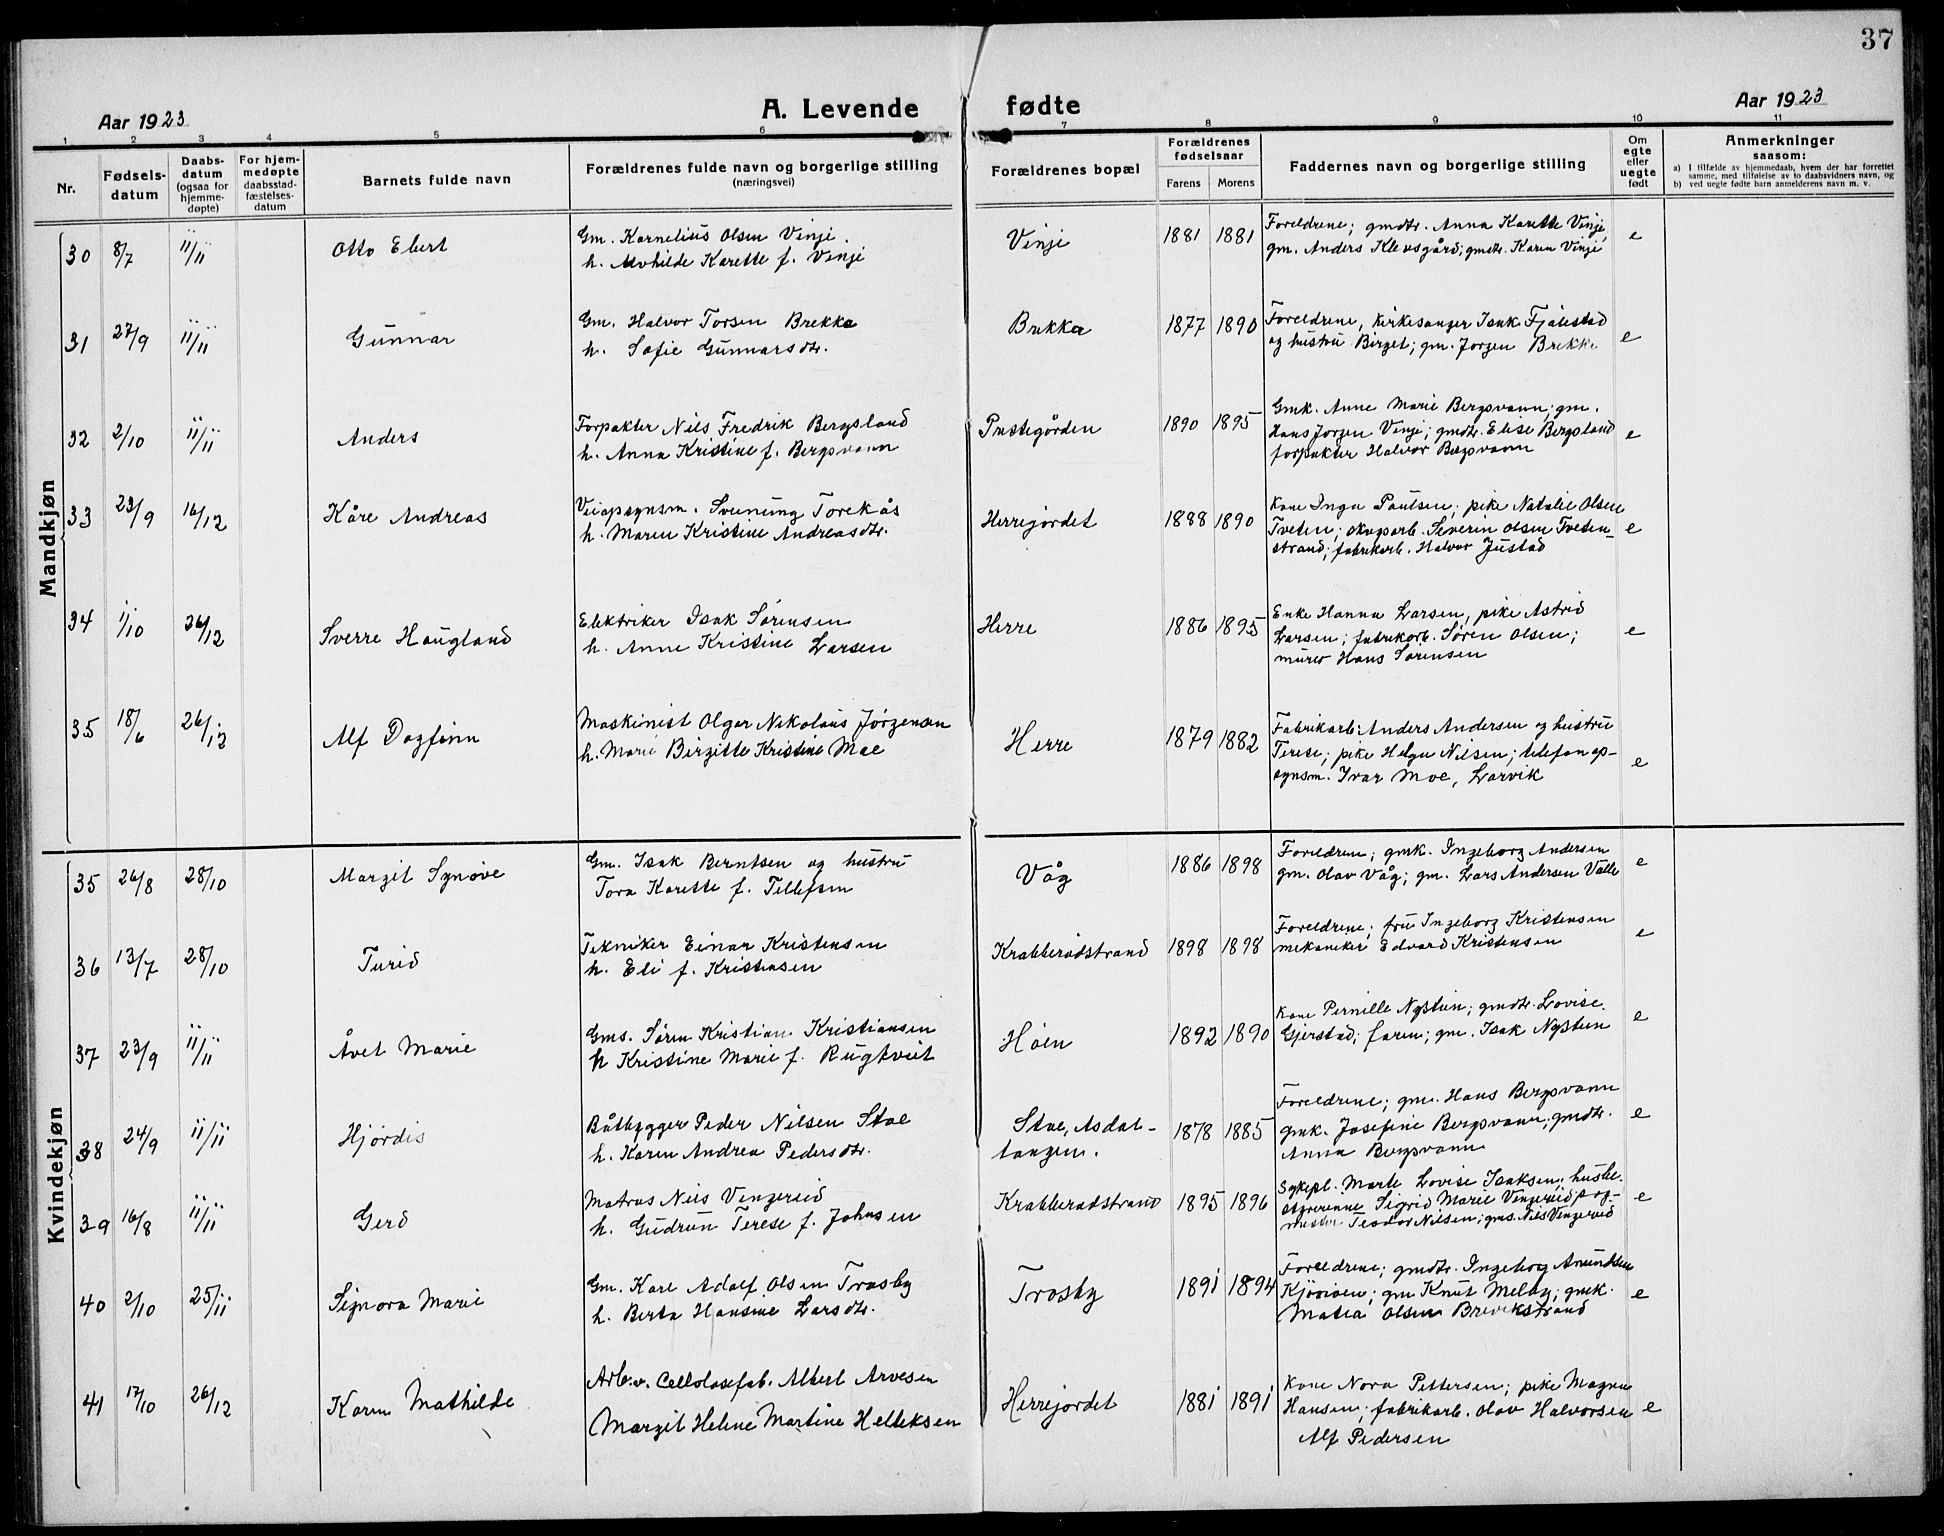 37
Aar 1923
A. Levende fødte
Aar 1923
1 2 3 4 5 6 7 8 9 10 11
Nr.
Fødsels-
datum
Daabs-
datum
(ogsaa for
hjemme-
døpte)
For hjem-
medøpte
daabsstad-
fæstelses-
datum
Barnets fulde navn
Forældrenes fulde navn og borgerlige stilling
(næringsvei)
Forældrenes bopæl
Forældrenes
fødselsaar
Farens Morens
Faddernes navn og borgerlige stilling
Om
egte
eller
uegte
født
Anmerkninger
saasom:
a) I tilfælde av hjemmedaab, hvem der har forrettet
samme, med tilføielse av to daabsvidners navn, og
b) ved uegte fødte barn anmelderens navn m. v.
Mandkjøn
30 8/7 11/11 Otto Ebert
Gm. Kornelius Olsen Vinje.
h. Alvhilde Karette f. Vinje
Vinje 1881 1881
Foreldrene; gmdtr. Anna Karette Vinje
gm. Anders Klevsgård; gmdtr. Karen Vinje
e
31 27/9 11/11 Gunnar
Gm. Halvor Torsen Brekka
h. Sofie Gunnarsdtr.
Brekka 1877 1890
Foreldrene, kirkesanger Isak Fjalestad
og hustru Birget; gm. Jørgen Brekke
e
32 2/10 11/11 Anders
Forpakter Nils Fredrik Bergsland
h. Anna Kristine f. Bergsvann
Prestegården 1890 1895
Gmk. Anne Marie Bergsvann; gm.
Hans Jørgen Vinje; gmdtr. Elise Bergsland
forpakter Halvor Bergsvann
e
33 23/9 16/12 Kåre Andreas
Veiopsynsm. Sveinung Torekås
h. Maren Kristine Andreasdtr.
Herrejordet 1888 1890
Kone Inga Paulsen, pike Natalie Olsen
Tveten; skogsarb. Severin Olsen Tveten-
strand; fabrikarb. Halvor Justad
e
34 1/10 26/12 Sverre Haugland
Elektriker Isak Sørensen
h. Anne Kristine Larsen
Herre 1886 1895
Enke Hanna Larsen, pike Astrid
Larsen; fabrikarb. Søren Olsen;
murer Hans Sørensen
e
35 18/6 26/12 Alf Dagfinn
Maskinist Olgar Nikolaus Jørgensen
h. Marie Birgitte Kristine Moe
Herre 1879 1882
Fabrikarb. Anders Andersen og hustru
Terese; pike Helga Nilsen; telefonop-
synsm. Ivar Moe, Larvik
e
Kvindekjøn
35 26/8 28/10 Margit Synøve
Gm. Isak Berntsen og hustru
Tora Karette f. Tellefsen
Våg 1886 1898
Foreldrene; gmk. Ingeborg Andersen
gm. Olav Våg; gm. Lars Andersen Valle
e
36 13/7 28/10 Turid
Tekniker Einar Kristensen
h. Eli f. Kristensen
Krabberødstrand 1898 1898
Foreldrene; fru Ingeborg Kristensen
mekaniker Edvard Kristensen
e
37 23/9 11/11 Åvet Marie
Gms. Søren Kristian Kristiansen
h Kristine Marie f. Rugtveit
Høen 1892 1890
Kone Pernille Nysten; gmdtr. Lovise
Gjerstad; faren; gm. Isak Nysten
e
38 24/9 11/11 Hjørdis
Båtbygger Peder Nilsen Stoe
h. Karen Andrea Pedersdtr.
Stoe, Asdal-
tangen. 1878 1885
Foreldrene; gm. Hans Bergsvann
gmk. Josefine Bergsvann; gmdtr.
Anna Bergsvann
e
39 16/8 11/11 Gerd
Matros Nils Vengereid
h. Gudrun Terese f. Johnsen
Krabberødstrand 1895 1896
Sykepl. Marte Lovise Isaksen; husbe-
styrerinne Sigrid Marie Vengereid;
Teodor Nilsen; gms. Nils Vengereid
e
40 2/10 25/11 Signora Marie
Gm. Karl Adolf Olsen Trosby
h. Berta Hansine Larsdtr.
Trosby 1891 1894
Foreldrene; gmdtr. Ingeborg Amundsen
Kjøsåen; gm Knut Melby; gmk.
Matea Olsen Brevikstrand
e
41 17/10 26/12 Karen Mathilde
Arb. v. Cellolosefab. Albert Arvesen
Margit Helene Martine Helleksen
Herrejordet 1881 1891
Kone Nora Pettersen; pike Magna
Hansen; fabrikarb. Olav Halvorsen
Alf Pedersen
e